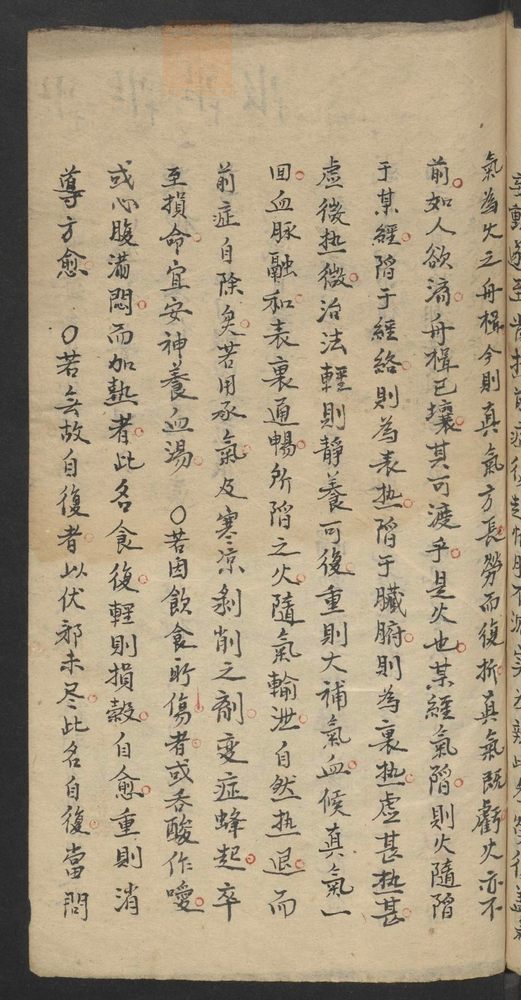 氣為火之舟楫今則真氣方長勞而復折真氣既虧火亦不
前如人欲濟舟楫已壞其可渡乎是火也某經氣陷則火隨陷
于某經陷于經絡則為表热陷于臟腑則為裏热虛甚热甚
虛微热微治法輕則靜養可復重則大補氣血候真氣一
回血脉融和表裏通暢所陷之火隨氣輸泄自然热退而
前症自除矣若用承氣及寒凉剝削之劑变症蜂起卒
至損命宜安神養血湯〇若因飲食所傷者或吞酸作噯
或心腹滿悶而加熱者此名食復輕則損穀自愈重則消
導方愈〇若無故自復者以伏邪未尽此名自復當問